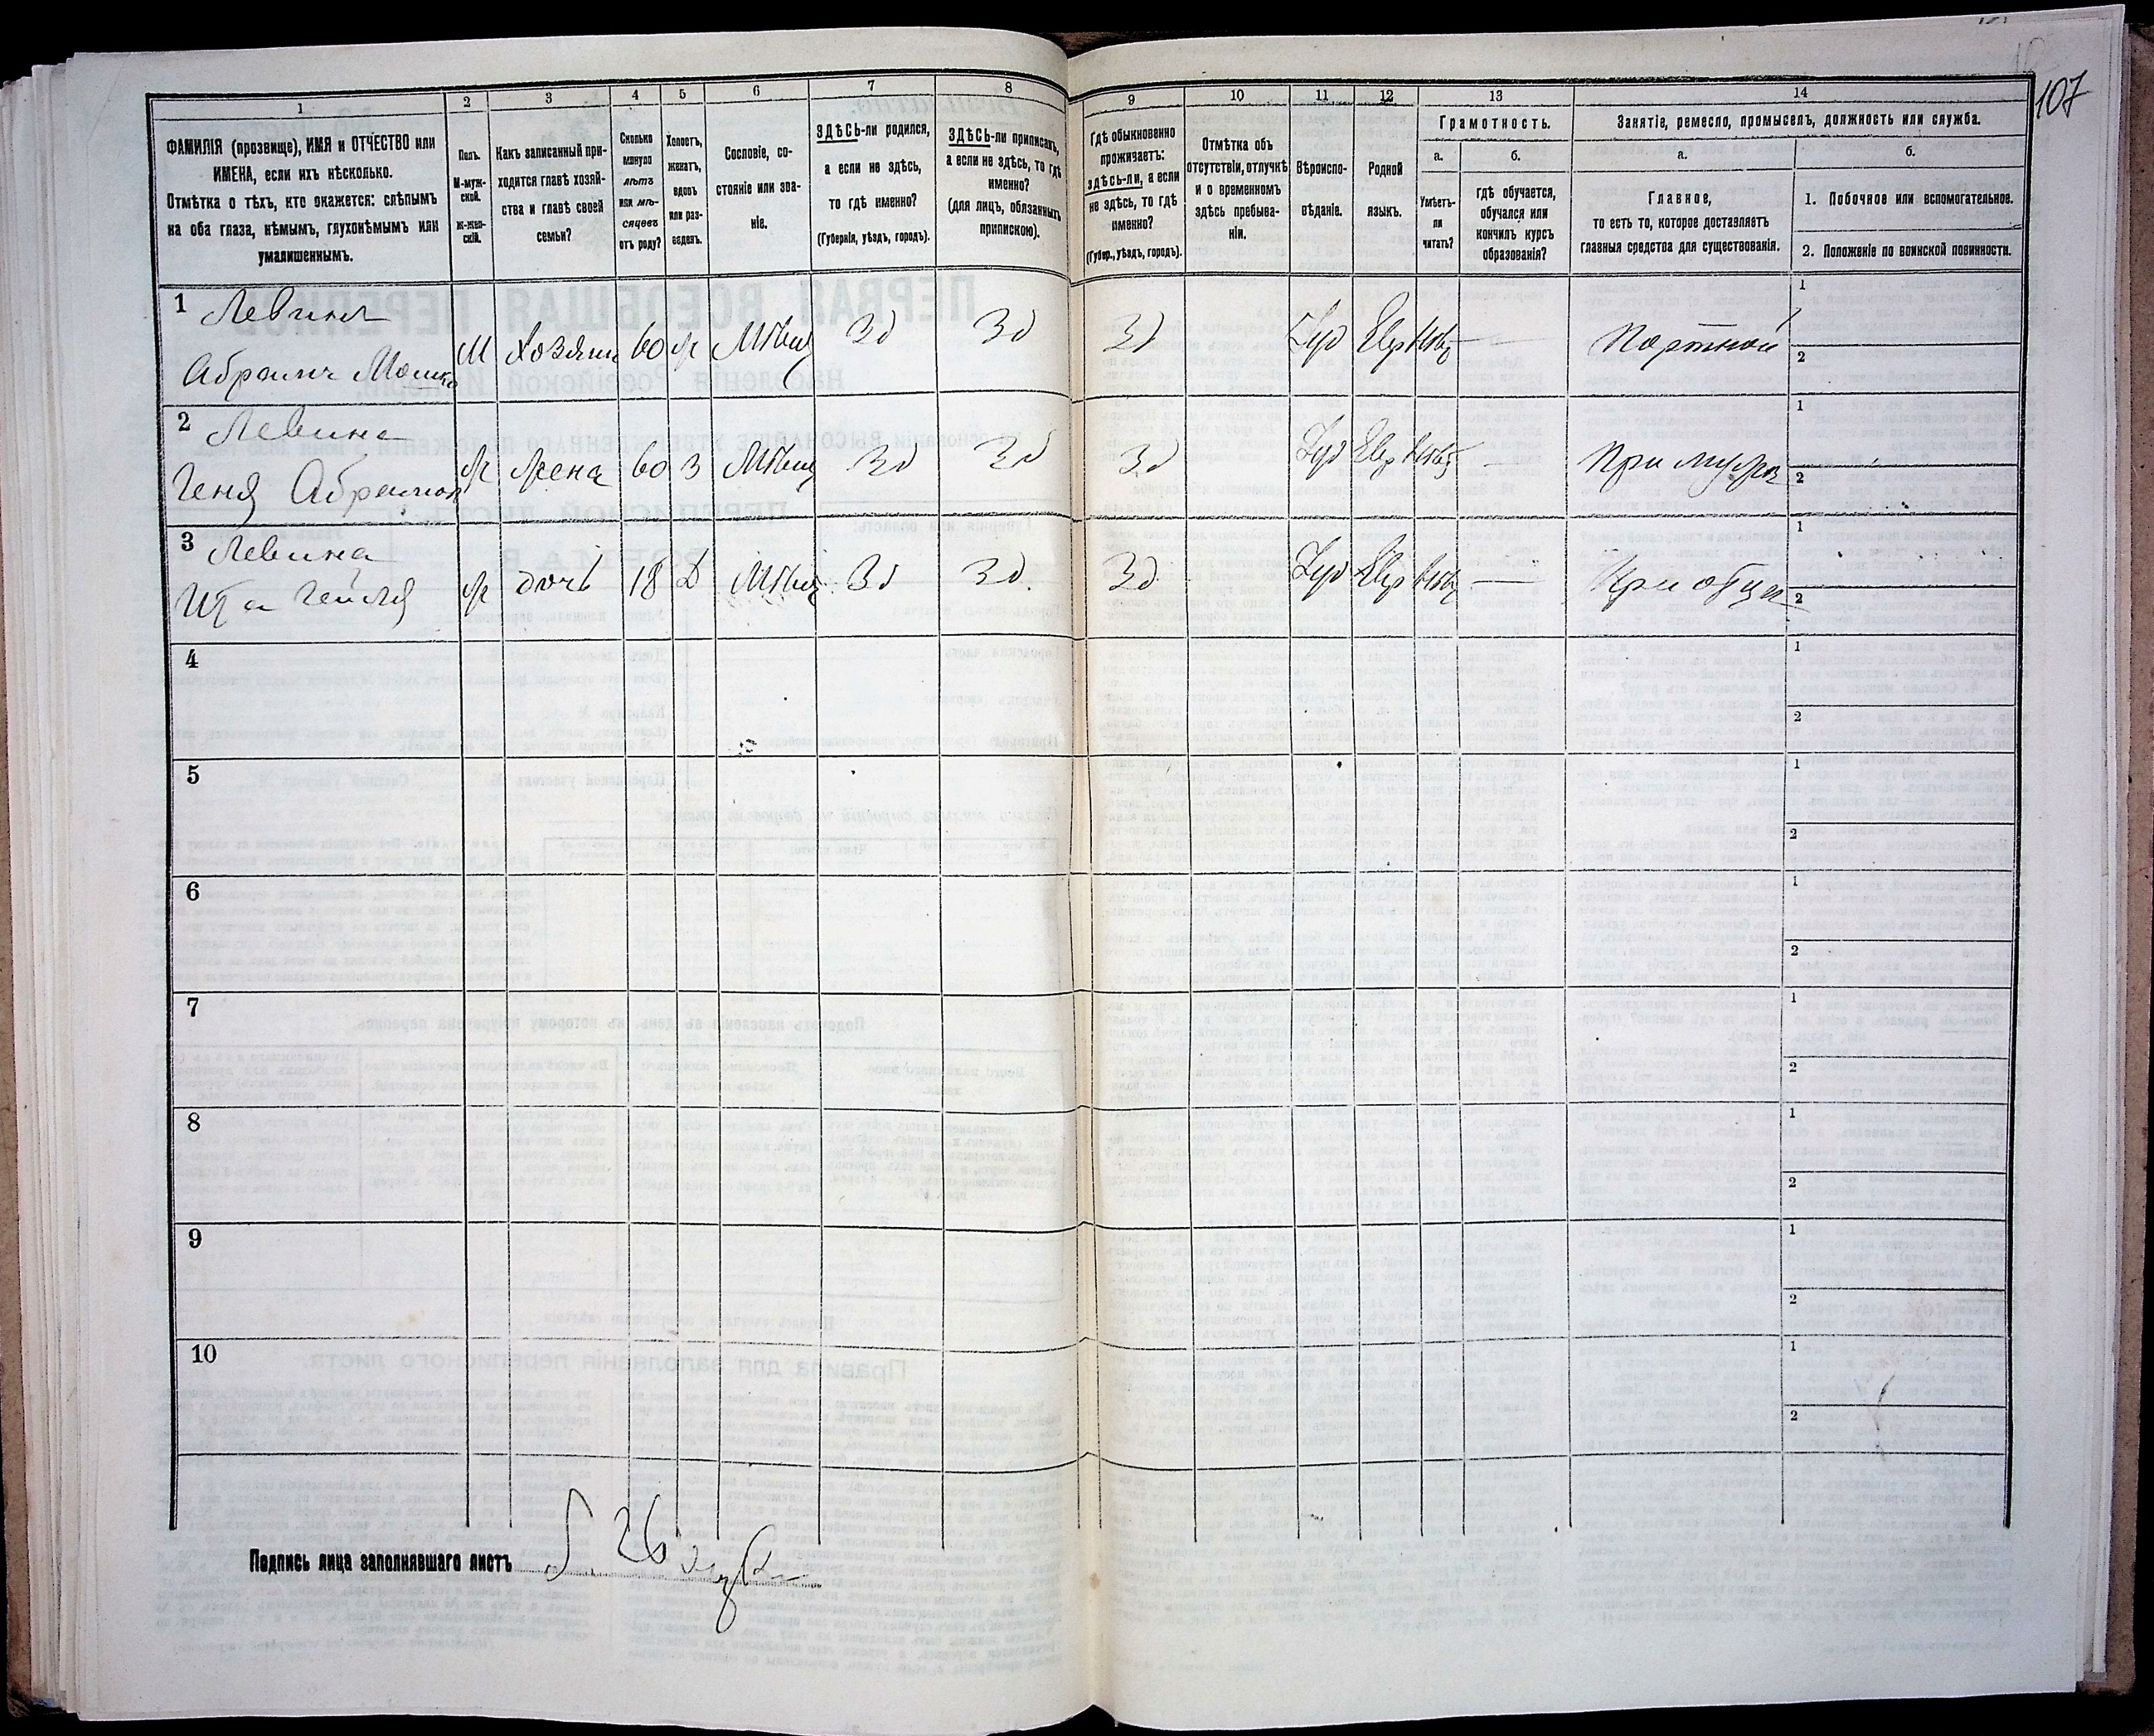 107
1
2
3
4
5
6
7
8
9
10
11
12
13
14
ФАМИЛІЯ (прозвище), ИМЯ и ОТЧЕСТВО или
ИМЕНА, если ихъ нѣсколько.
Отмѣтка о тѣхъ, кто окажется: слѣпымъ
на оба глаза, нѣмымъ, глухонѣмымъ или
умалишеннымъ.
Полъ.
М-муж-
ской.
Ж-жен-
скій.
Какъ записанный при-
ходится главѣ хозяй-
ства и главѣ своей
семьи?
Сколько
минуло
лѣтъ
или мѣ-
сяцевъ
отъ роду?
Холостъ,
женатъ,
вдовъ
или раз-
веденъ.
Сословіе, со-
стояніе или зва-
ніе.
ЗДѢСЬ-ли родился,
а если не здѣсь,
то гдѣ именно?
(Губернія, уѣздъ, городъ).
ЗДѢСЬ-ли приписанъ,
а если не здѣсь, то гдѣ
именно?
(для лицъ, обязанныхъ
припискою).
Гдѣ обыкновенно
проживаетъ:
здѣсь-ли, а если
не здѣсь, то гдѣ
именно?
(Губер., уѣздъ, городъ).
Отмѣтка объ
отсутствіи, отлучкѣ
и о временномъ
здѣсь пребыва-
ніи.
Вѣроиспо-
вѣданіе.
Родной
языкъ.
Грамотность.
а.
Умѣетъ-
ли
читать?
б.
гдѣ обучается,
обучался или
кончилъ курсъ
образованія?
Занятіе, ремесло, промыселъ, должность или служба.
а.
Главное,
то есть то, которое доставляетъ
главныя средства для существованія.
б.
1. Побочное или вспомогательное.
2. Положеніе по воинской повинности.
1 Левинъ
Абрамъ
М Хозяинъ 60 ж Мѣщ Зд Зд Зд Іуд Евр Портной
1
2
2 Левина
Геня
ж жена 60 З Мѣщ Зд Зд Зд Іуд Евр — При мужѣ
1
2
3 Левина
Ита
ж дочь 18 Д Мѣщ Зд Зд Зд Іуд Евр — При отцѣ
1
2
4
1
2
5
1
2
6
1
2
7
1
2
8
1
2
9
1
2
10
1
2
Подпись лица заполнявшаго листъ